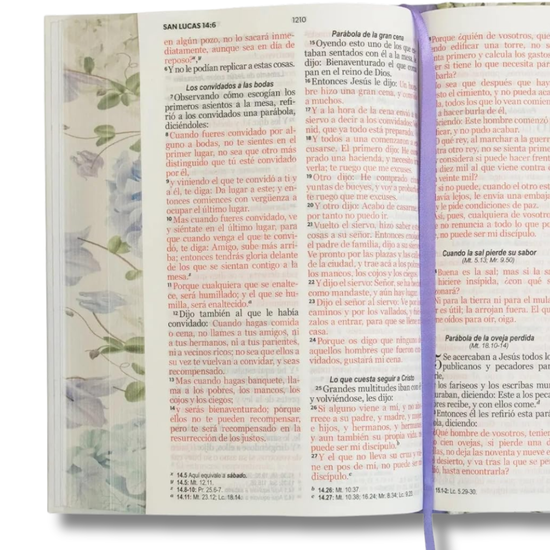 SAN LUCAS 14:6
1210
en algún pozo, no lo sacará inme-
diatamente, aunque sea en día de
reposo?
6 Y no le podían replicar a estas cosas.
Los convidados a las bodas
7 Observando cómo escogían los
primeros asientos a la mesa, refi-
rió a los convidados una parábola,
diciéndoles:
8 Cuando fueres convidado por al-
guno a bodas, no te sientes en el
primer lugar, no sea que otro más
distinguido que tú esté convidado
por él,
9 y viniendo el que te convidó a ti y
a él, te diga: Da lugar a este; y en-
tonces comiences con vergüenza a
ocupar el último lugar.
10 Mas cuando fueres convidado, ve
y siéntate en el último lugar, para
que cuando venga el que te convi-
dó, te diga: Amigo, sube más arri-
ba; entonces tendrás gloria delante
de los que se sientan contigo a la
mesa.
11 Porque cualquiera que se enalte-
ce, será humillado; y el que se hu-
milla, será enaltecido.
12 Dijo también al que le había
convidado: Cuando hagas comida
o cena, no llames a tus amigos, ni a
tus hermanos, ni a tus parientes,
ni a vecinos ricos; no sea que ellos a
su vez te vuelvan a convidar, y seas
recompensado.
13 Mas cuando hagas banquete, lla-
ma a los pobres, los mancos, los
cojos y los ciegos;
14 y serás bienaventurado; porque
ellos no te pueden recompensar,
pero te será recompensado en la
resurrección de los justos.
a 14.5 Aquí equivale a sábado.
14.5: Mt. 12.11.
14.8-10: Pr. 25.6-7.
14.11: Mt. 23.12; Lc. 18.14.
Parábola de la gran cena
15 Oyendo esto uno de los que
taban sentados con él a la
dijo: Bienaventurado el que
pan en el reino de Dios.
16 Entonces Jesús le dijo: Un
bre hizo una gran cena, y
a muchos.
17 Y a la hora de la cena envió
siervo a decir a los convidados:
nid, que ya todo está preparado.
18 Y todos a una comenzaron
cusarse. El primero dijo: He
prado una hacienda, y necesito
verla; te ruego que me excuses.
19 Otro dijo: He comprado
yuntas de bueyes, y voy a
te ruego que me excuses.
20 Y otro dijo: Acabo de casarme,
por tanto no puedo ir.
21 Vuelto el siervo, hizo saber
cosas a su señor. Entonces enojado
el padre de familia, dijo a su
Ve pronto por las plazas y las calles
de la ciudad, y trae acá a los pobres,
los mancos, los cojos y los ciegos.
22 Y dijo el siervo: Señor, se ha
como mandaste, y aún hay lugar.
23 Dijo el señor al siervo: Ve por
caminos y por los vallados, y
zalos a entrar, para que se llene
casa.
24 Porque os digo que ninguno
aquellos hombres que fueron
vidados, gustará mi cena.
Lo que cuesta seguir a Cristo
25 Grandes multitudes iban con
y volviéndose, les dijo:
26 Si alguno viene a mí, y no
rrece a su padre, y madre, y
e hijos, y hermanos, y hermanas,
y aun también su propia vida,
puede ser mi discípulo.
27 Y el que no lleva su cruz y
ne en pos de mí, no puede ser
discípulo.
14.26: Mt. 10.37
14.27: Mt. 10.38; 16.24; Mr. 8.34; Lc. 9.23.
Porque ¿quién de vosotros,
edificar una torre, no se
primero y calcula los gastos,
si tiene lo que necesita para
No sea que después que haya
el cimiento, y no pueda
todos los que lo vean
a hacer burla de él,
Este hombre comenzó
y no pudo acabar.
qué rey, al marchar a la guerra
otro rey, no se sienta primero
considera si puede hacer frente
diez mil al que viene contra
veinte mil?
si no puede, cuando el otro
lejos, le envía una embajada
y le pide condiciones de paz.
pues, cualquiera de vosotros
no renuncia a todo lo que
puede ser mi discípulo.
Cuando la sal pierde su sabor
(Mt. 5.13; Mr. 9.50)
Buena es la sal; mas si la sal
hiciere insípida, ¿con qué
Ni para la tierra ni para el
es útil; la arrojan fuera. El
oídos para oír, oiga.
Parábola de la oveja perdida
(Mt. 18.10-14)
Se acercaban a Jesús todos los
publicanos y pecadores para
los fariseos y los escribas
diciendo: Este a los
recibe, y con ellos come.
Entonces él les refirió esta
diciendo:
¿Qué hombre de vosotros,
cien ovejas, si pierde una
no deja las noventa y nueve
desierto, y va tras la que se
hasta encontrarla?
15.1-2: Lc. 5.29-30.